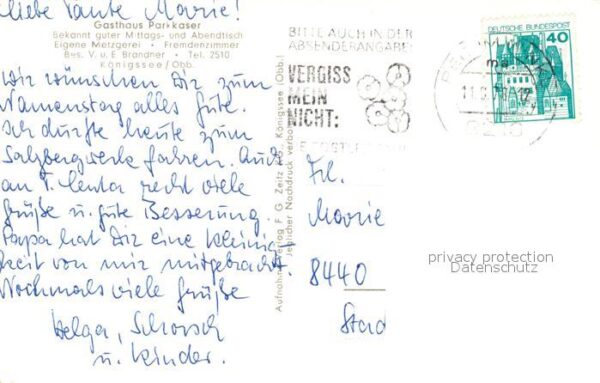 Liebe Tante Marie!
Gasthaus Parkkaser
Bekannt guter Mittags- und Abendtisch
Eigene Metzgerei · Fremdenzimmer
Bes. V. u. E Brandner · Tel. 2510
Königssee/Obb.
Wir wünschen Dir zum
Namenstag alles Gute.
Ich durfte heute zum
Salzbergwerk fahren. Auch
an T. Centa recht viele
Grüße u. gute Besserung.
Papa hat Dir eine Kleinig
keit von mir mitgebracht.
Nochmals viele Grüße
Helga, Schorsch
u. Kinder.
Aufnahme Verlag F. G. Zeitz KG., Königssee (Obb.)
Jeglicher Nachdruck verboten
BITTE AUCH IN DER
ABSENDERANGABE!
VERGISS
MEIN
NICHT:
DEUTSCHE BUNDESPOST
40
Frl.
Marie
8440
privacy protection
Datenschutz